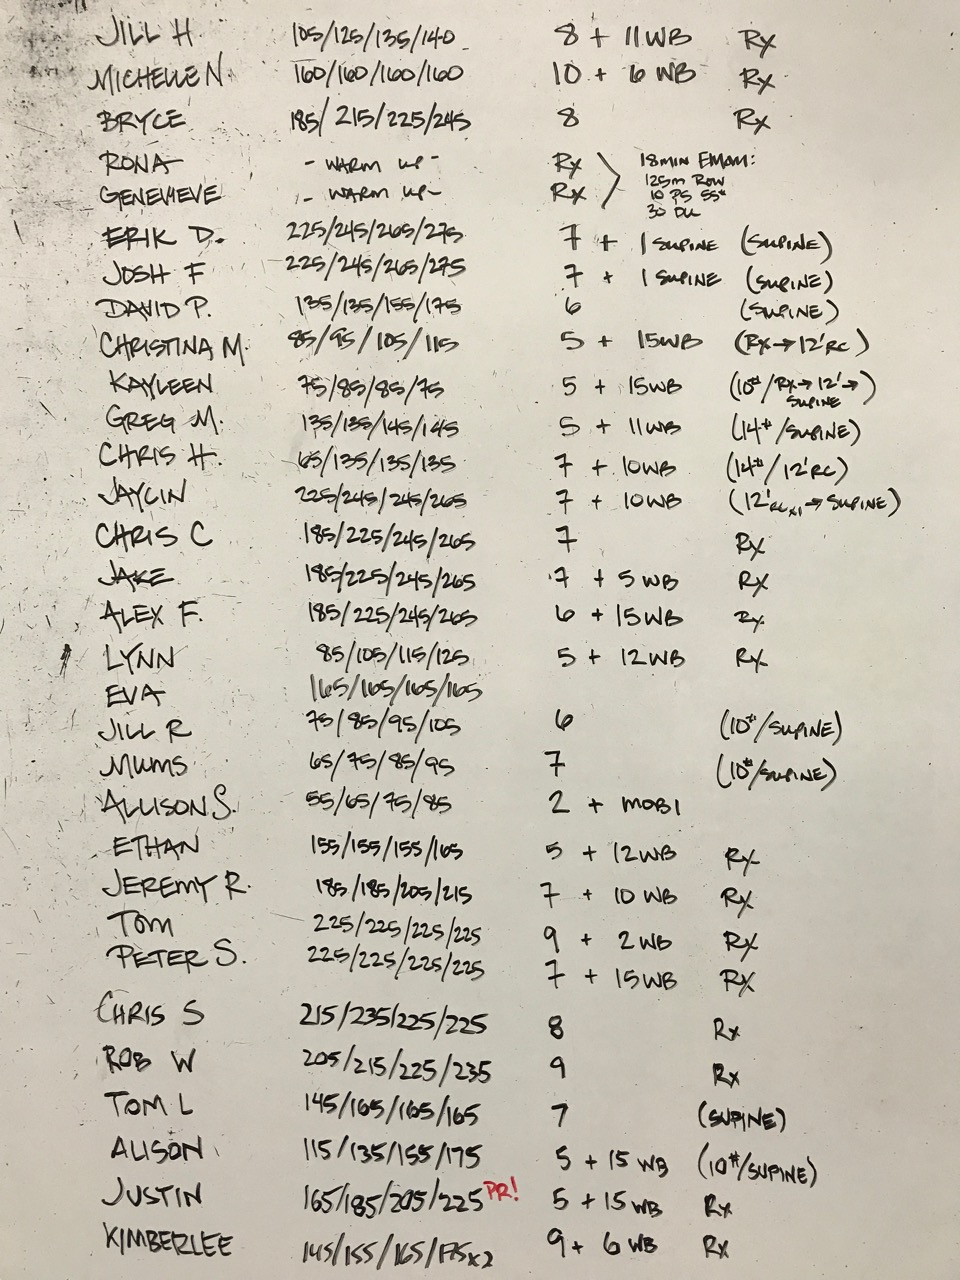 JILL H 105/125/135/140 8 + 11WB Rx
MICHELLE N. 160/160/160/160 10 + 6 WB Rx
BRYCE 185/215/225/245 8 Rx
RONA - WARM UP - Rx 18MIN EMOM:
125m ROW
GENEVIEVE - WARM UP - Rx 10 PS 55#
30 DU
ERIK D. 225/245/265/275 7 + 1 SUPINE (SUPINE)
JOSH F 225/245/265/275 7 + 1 SUPINE (SUPINE)
DAVID P. 135/135/155/175 6 (SUPINE)
CHRISTINA M. 85/95/105/115 5 + 15WB (Rx→12'RC)
KAYLEEN 75/85/85/75 5 + 15WB (10#/Rx→12'→
SUPINE)
GREG M. 135/135/145/145 5 + 11WB (14#/SUPINE)
CHRIS H. 65/135/135/135 7 + 10WB (14#/12'RC)
JAYLIN 225/245/245/265 7 + 10WB (12'RCx1→SUPINE)
CHRIS C 185/225/245/265 7 Rx
JAKE 185/225/245/265 7 + 5 WB Rx
ALEX F. 185/225/245/265 6 + 15WB Rx
LYNN 85/105/115/125 5 + 12WB Rx
EVA 165/165/165/165
JILL R 75/85/95/105 6 (10#/SUPINE)
MUMS 65/75/85/95 7 (10#/SUPINE)
ALLISON S. 55/65/75/85 2 + MOBI
ETHAN 155/155/155/165 5 + 12WB Rx
JEREMY R. 185/185/205/215 7 + 10 WB Rx
TOM 225/225/225/225 9 + 2WB Rx
PETER S. 225/225/225/225 7 + 15WB Rx
CHRIS S 215/235/225/225 8 Rx
ROB W 205/215/225/235 9 Rx
TOM L 145/165/165/165 7 (SUPINE)
ALISON 115/135/155/175 5 + 15 WB (10#/SUPINE)
JUSTIN 165/185/205/225 PR! 5 + 15 WB Rx
KIMBERLEE 145/155/165/175x2 9 + 6 WB Rx